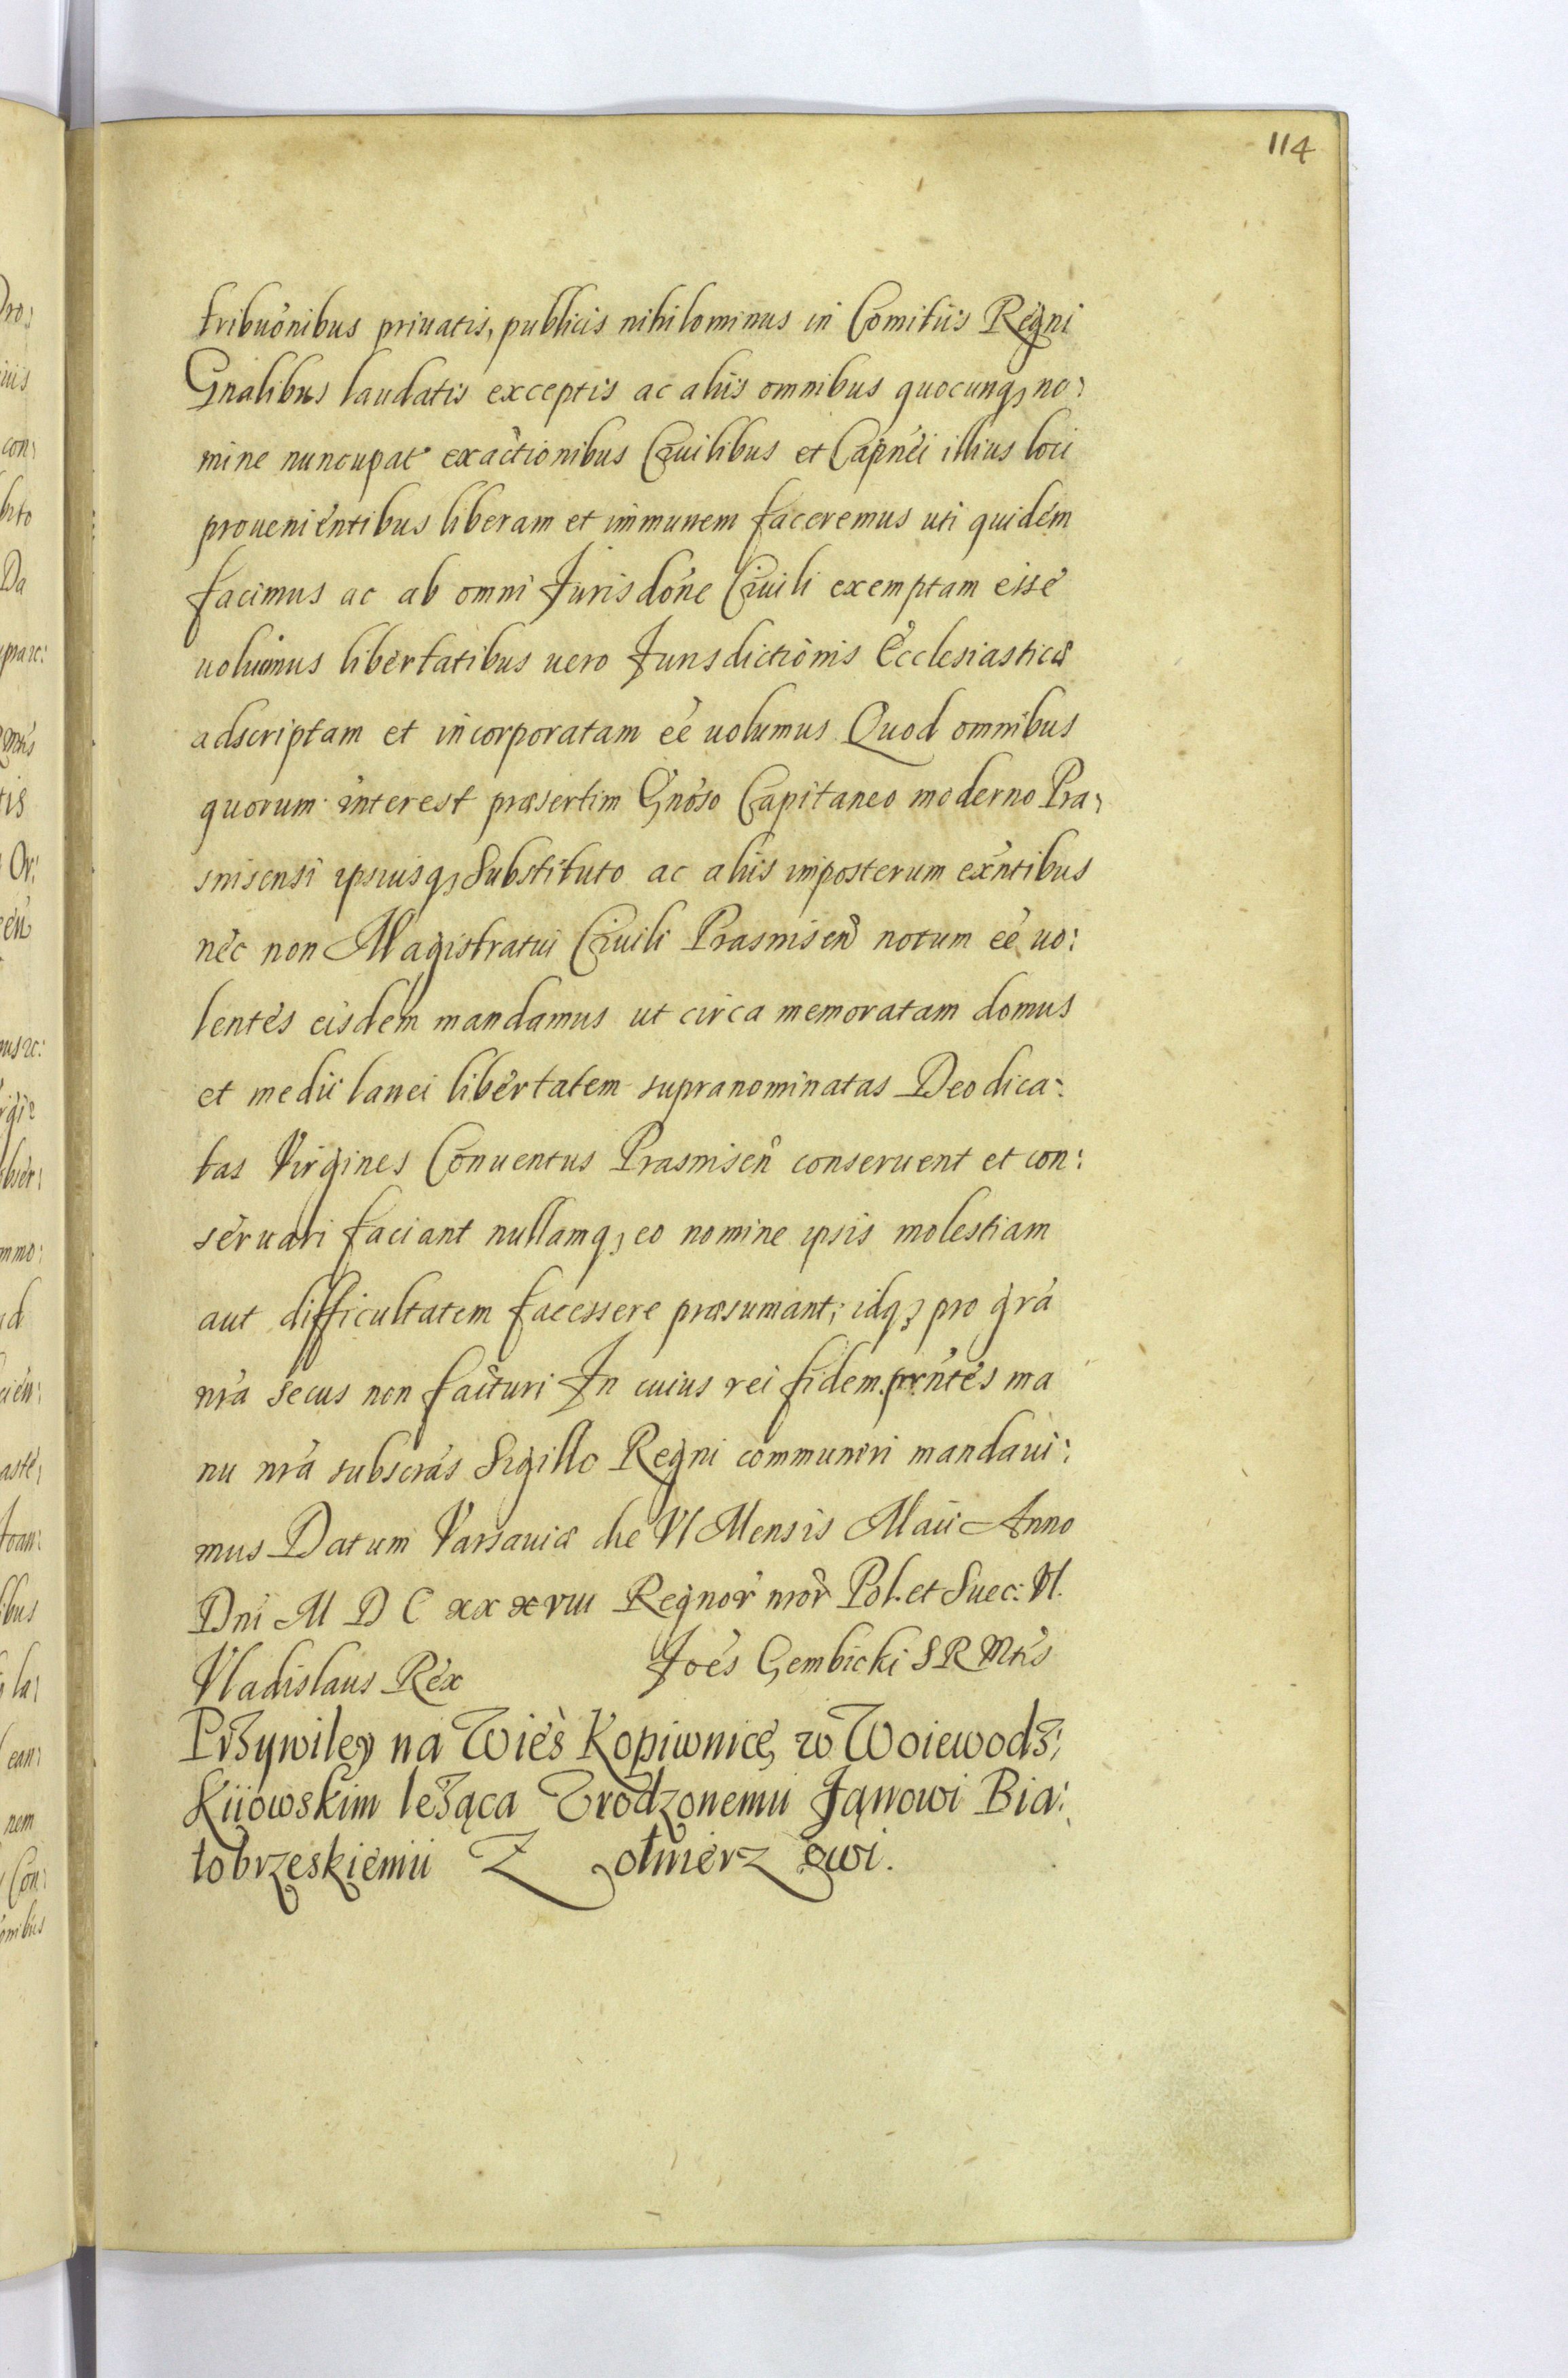 114
tribuónibus priuatis, publicis nihilominus in Comitiis Regni
Gnalibus laudatis exceptis ac aliis omnibus quocunq, no:
mine nuncupat exactionibus Ciuilibus et Capnei illius loci
prouenientibus liberam et immunem faceremus uti quidem
facimus ac ab omni Jurisdóne Ciuili exemptam eisse
uolumus libertatibus uero Jurisdictionis Ecclesiasticæ
adscriptam et incorporatam eé uolumus Quod omnibus
quorum interest præsertim Gnóso Capitaneo moderno Pra,
snisensi ipsiusq, Substituto ac aliis imposterum exńtibus
nec non Magistratui Ciuili Prasnisen notum eé uo:
lentes eisdem mandamus ut circa memoratam domus
et medii lanei libertatem supranominatas Deo dica:
tas Virgines Conuentus Prasnisen conseruent et con:
seruari faciant nullamq, eo nomine ipsis molestiam
aut difficultatem facessere præsumant; idq, pro grá
nrá secus non facturi In cuius rei fidem prńtes ma
nu nrá subscrás Sigillo Regni communiri mandaui:
mus Datum Varsauiæ die VI Mensis Maii Anno
Dni M D C xx x viii Regnor nror Pol. et Suec: VI.
Vladislaus Rex Joes Gembicki S R Mtis
Przywiley na Wieś Kopiwnicę, w Woiewodz:
Kiiowskim leżąca Vrodzonemu Janowi Bia:
łobrzeskiemu Zołnierzowi.